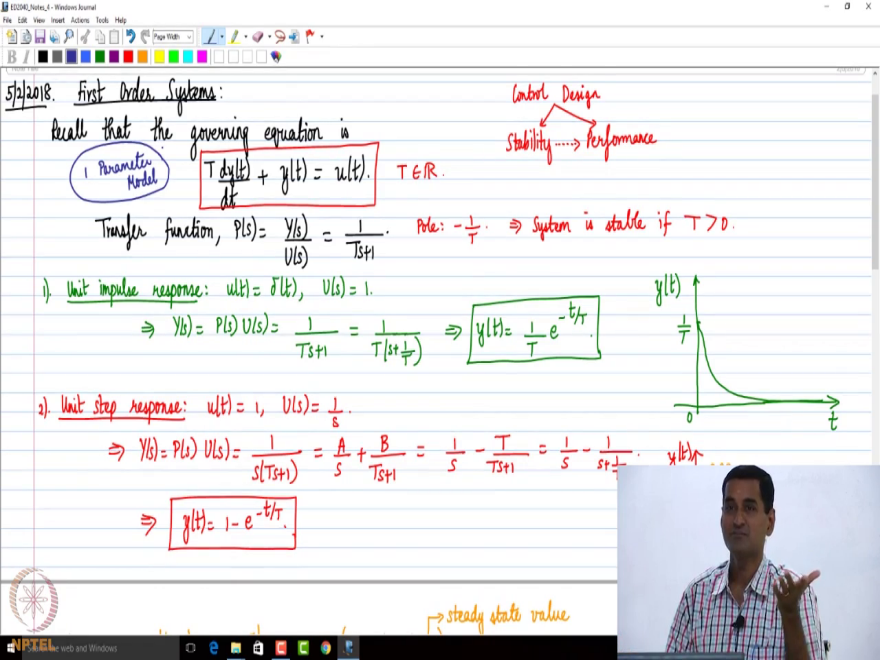 ED2040_Notes_4 - Windows Journal
File Edit View Insert Actions Tools Help
Page Width
B I
5/2/2018. First Order Systems:
Control Design
Stability ----> Performance
Recall that the governing equation is
1 Parameter Model
T dy(t)/dt + y(t) = u(t). T ∈ ℝ.
Transfer function, P(s) = Y(s)/U(s) = 1/(Ts+1). Pole: -1/T ⇒ System is stable if T > 0.
1). Unit impulse response: u(t) = δ(t), U(s) = 1.
⇒ Y(s) = P(s) U(s) = 1/(Ts+1) = 1/(T(s+1/T)) ⇒ y(t) = 1/T e^(-t/T).
y(t)
1/T
0
t
2). Unit step response: u(t) = 1, U(s) = 1/s.
⇒ Y(s) = P(s) U(s) = 1/(s(Ts+1)) = A/s + B/(Ts+1) = 1/s - T/(Ts+1) = 1/s - 1/(s+1/T).
y(t)
⇒ y(t) = 1 - e^(-t/T).
steady state value
NPTEL
the web and Windows